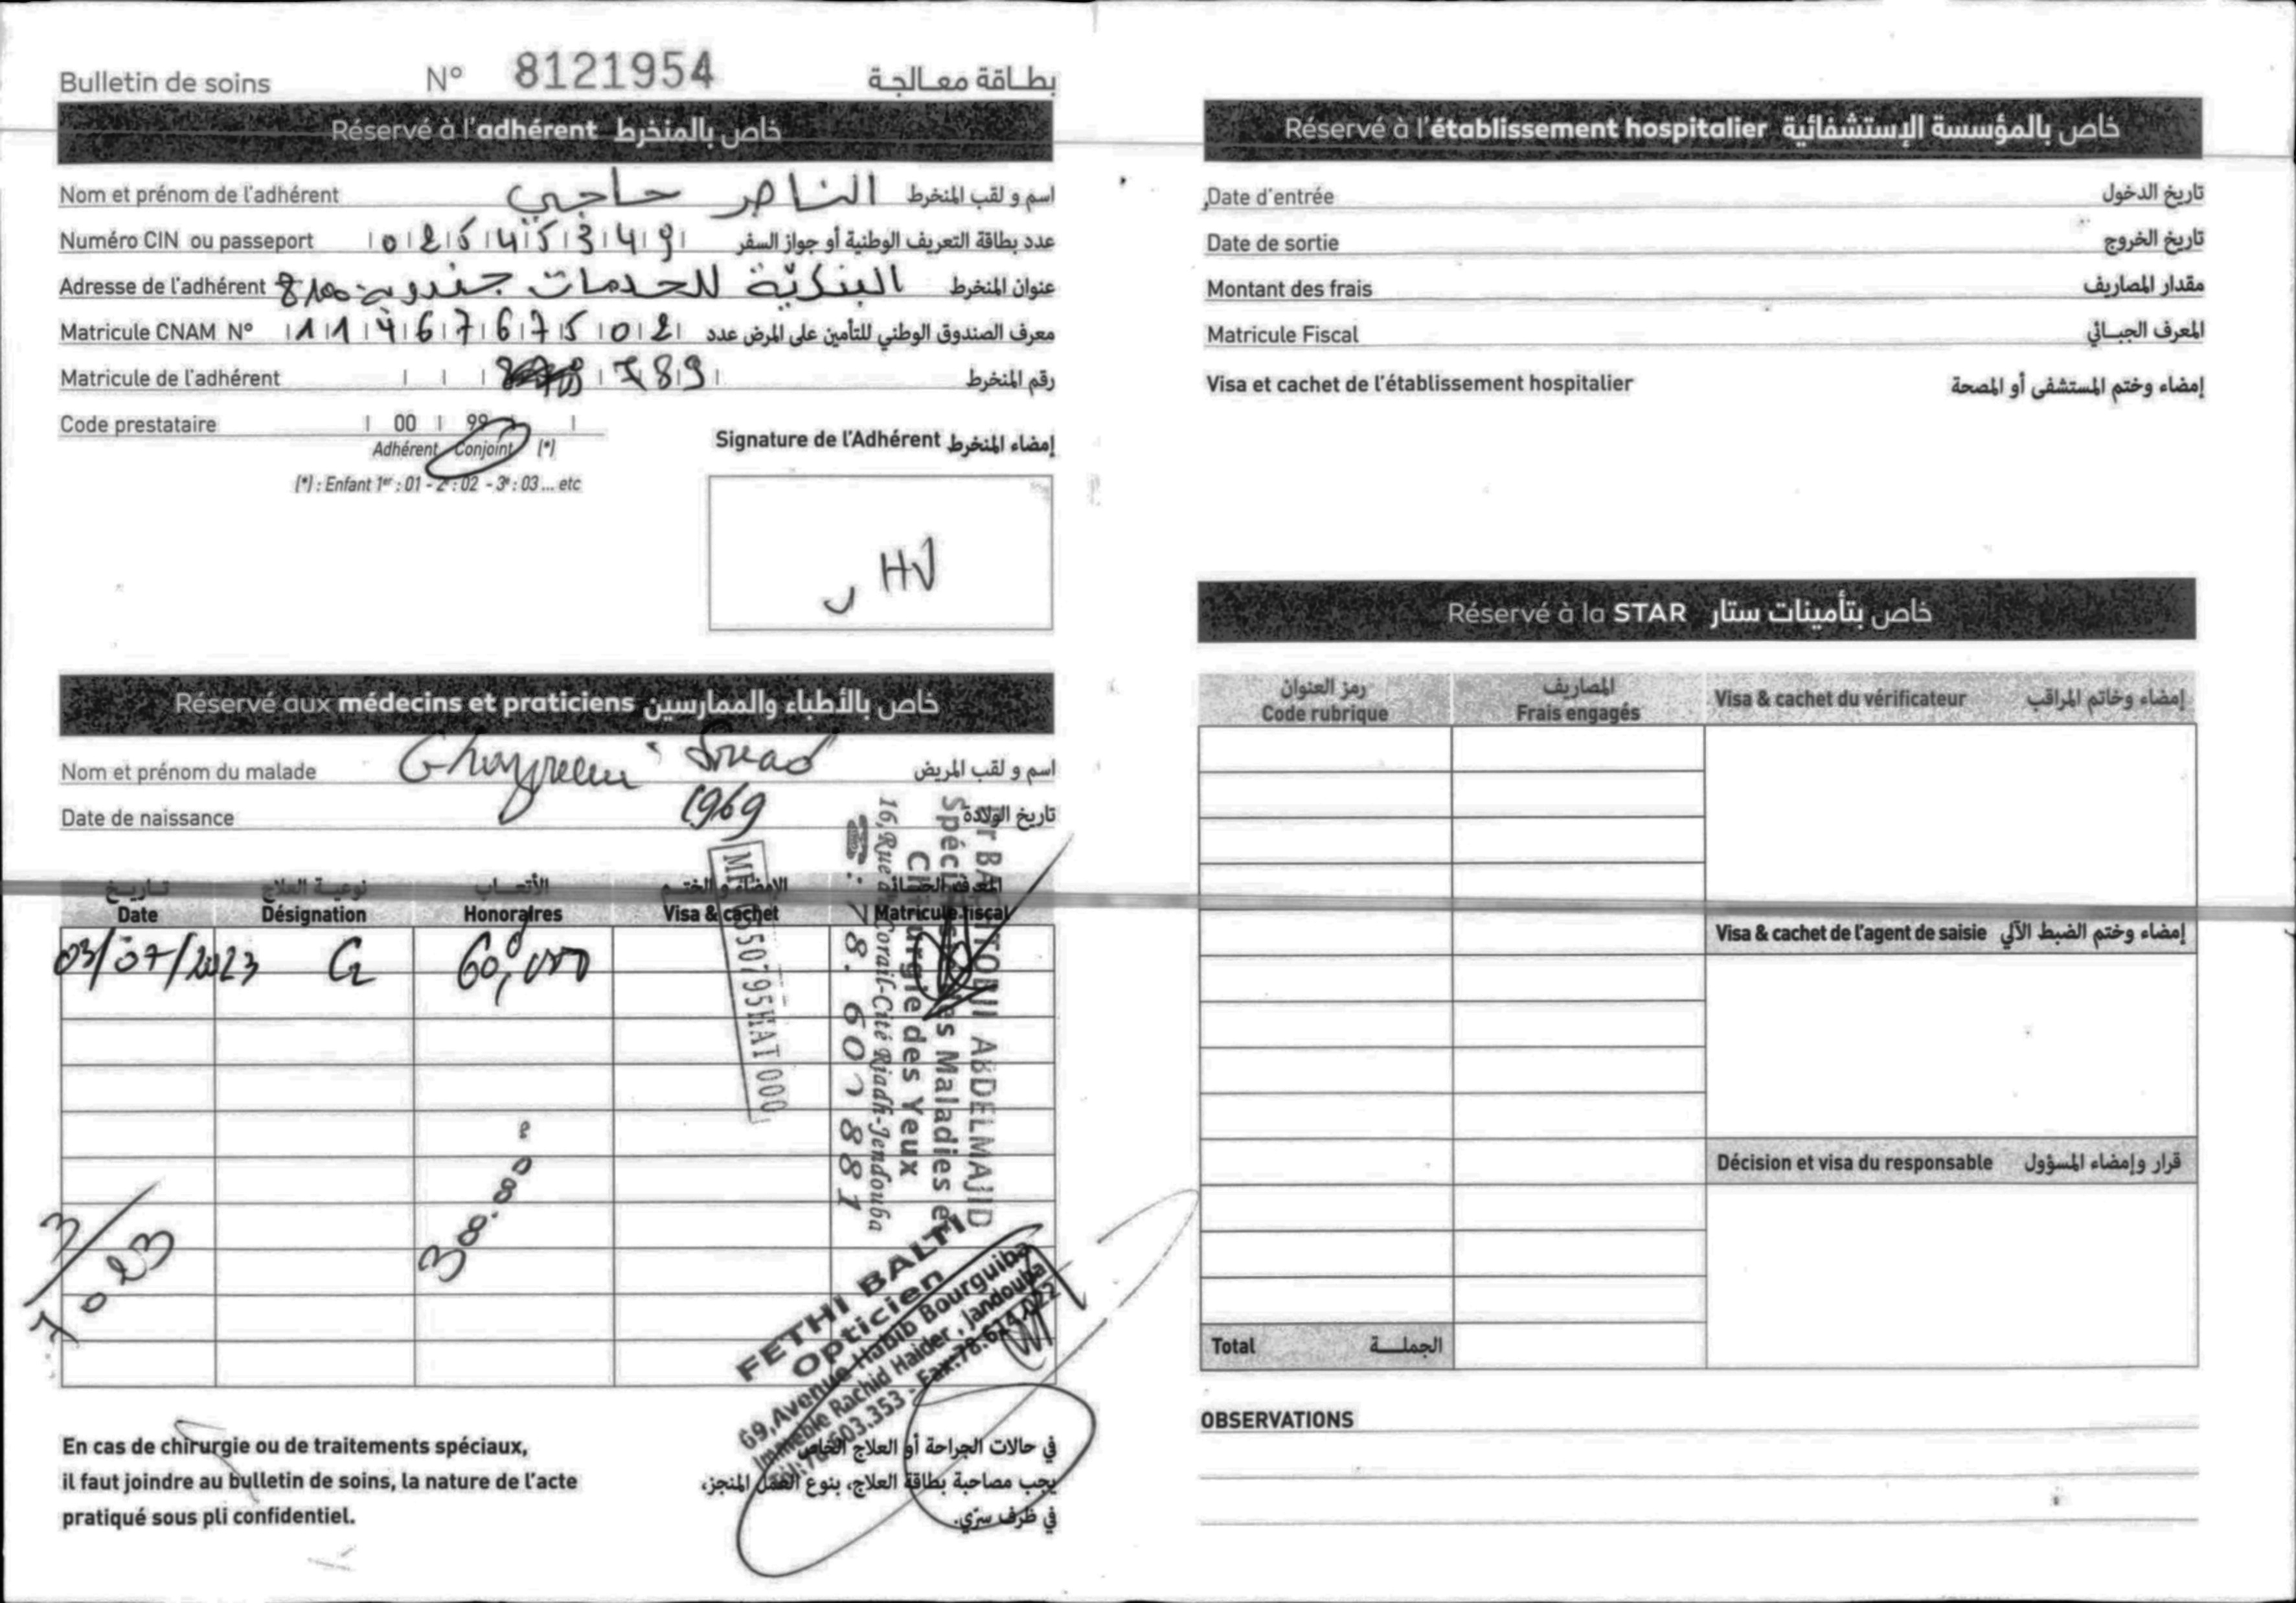 Bulletin de soins N° 8121954 بطاقة معالجة
Réservé à l'adhérent خاص بالمنخرط
Nom et prénom de l'adhérent الناصر حاجي اسم و لقب المنخرط
Numéro CIN ou passeport 02545349 عدد بطاقة التعريف الوطنية أو جواز السفر
Adresse de l'adhérent البنكيّة للخدمات جندوبة 8100 عنوان المنخرط
Matricule CNAM N° 1146767502 معرف الصندوق الوطني للتأمين على المرض عدد
Matricule de l'adhérent 789 رقم المنخرط
Code prestataire 00 99
Adhérent Conjoint (*)
(*) : Enfant 1er : 01 - 2e : 02 - 3e : 03 ... etc
Signature de l'Adhérent إمضاء المنخرط
Réservé aux médecins et praticiens خاص بالأطباء والممارسين
Nom et prénom du malade Souad اسم و لقب المريض
Date de naissance 1969 تاريخ الولادة
تاريخ نوعية العلاج الأتعاب الامضاء و الختم المعرف الجبائي
Date Désignation Honoraires Visa & cachet Matricule fiscal
03/07/2023 C2 60,000
ABDELMAJID
Spécialiste des Maladies et
Chirurgie des Yeux
16, Rue de Corail-Cité Riadh-Jendouba
78. 607 881
3/7 023
FETHI BALTI
Opticien
69, Avenue Habib Bourguiba
Immeuble Rachid Haider, Jandouba
603.353 - Fax:78.614.022
En cas de chirurgie ou de traitements spéciaux,
il faut joindre au bulletin de soins, la nature de l'acte
pratiqué sous pli confidentiel.
في حالات الجراحة أو العلاج الخاص
يجب مصاحبة بطاقة العلاج، بنوع العمل المنجز،
في ظرف سرّي.
Réservé à l'établissement hospitalier خاص بالمؤسسة الإستشفائية
Date d'entrée تاريخ الدخول
Date de sortie تاريخ الخروج
Montant des frais مقدار المصاريف
Matricule Fiscal المعرف الجبائي
Visa et cachet de l'établissement hospitalier إمضاء وختم المستشفى أو المصحة
Réservé à la STAR خاص بتأمينات ستار
رمز العنوان المصاريف
Code rubrique Frais engagés Visa & cachet du vérificateur إمضاء وخاتم المراقب
Visa & cachet de l'agent de saisie إمضاء وختم الضبط الآلي
Décision et visa du responsable قرار وإمضاء المسؤول
Total الجملة
OBSERVATIONS